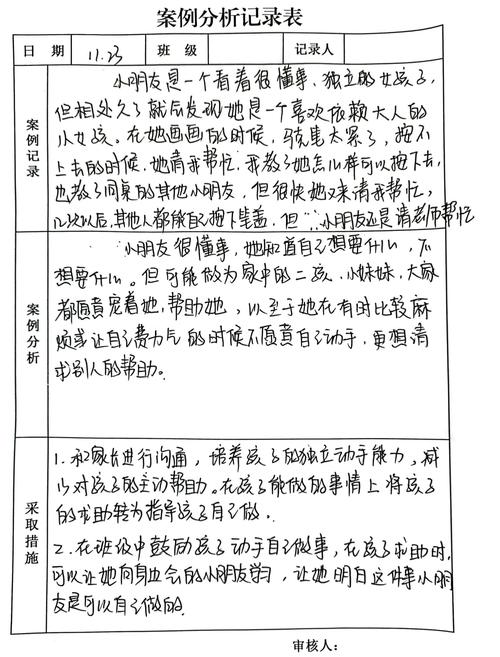 案例分析记录表
日 期 11.23 班 级 记录人
案例记录
小朋友是一个看着很懂事、独立的女孩子，
但相处久了就后发现她是一个喜欢依赖大人的
小女孩。在她画画的时候，马克笔太累了，按不
上去的时候，她请我帮忙，我教了她怎么样可以按下去，
也教了同桌的其他小朋友，但很快她又来请我帮忙，
几次以后，其他人都能自己按下笔盖，但 小朋友还是请老师帮忙
案例分析
小朋友很懂事，她知道自己想要什么，不
想要什么。但可能做为家中的二孩，小妹妹，大家
都愿意宠着她，帮助她，以至于她在有时比较麻
烦或让自己费力气的时候不愿意自己动手，更想请
求别人的帮助。
采取措施
1. 和家长进行沟通，培养孩子的独立动手能力，减
少对孩子的主动帮助。在孩子能做的事情上将孩子
的求助转为指导孩子自己做。
2. 在班级中鼓励孩子动手自己做事，在孩子求助时，
可以让她向身边会的小朋友学习，让她明白这件事小朋
友是可以自己做的
审核人：